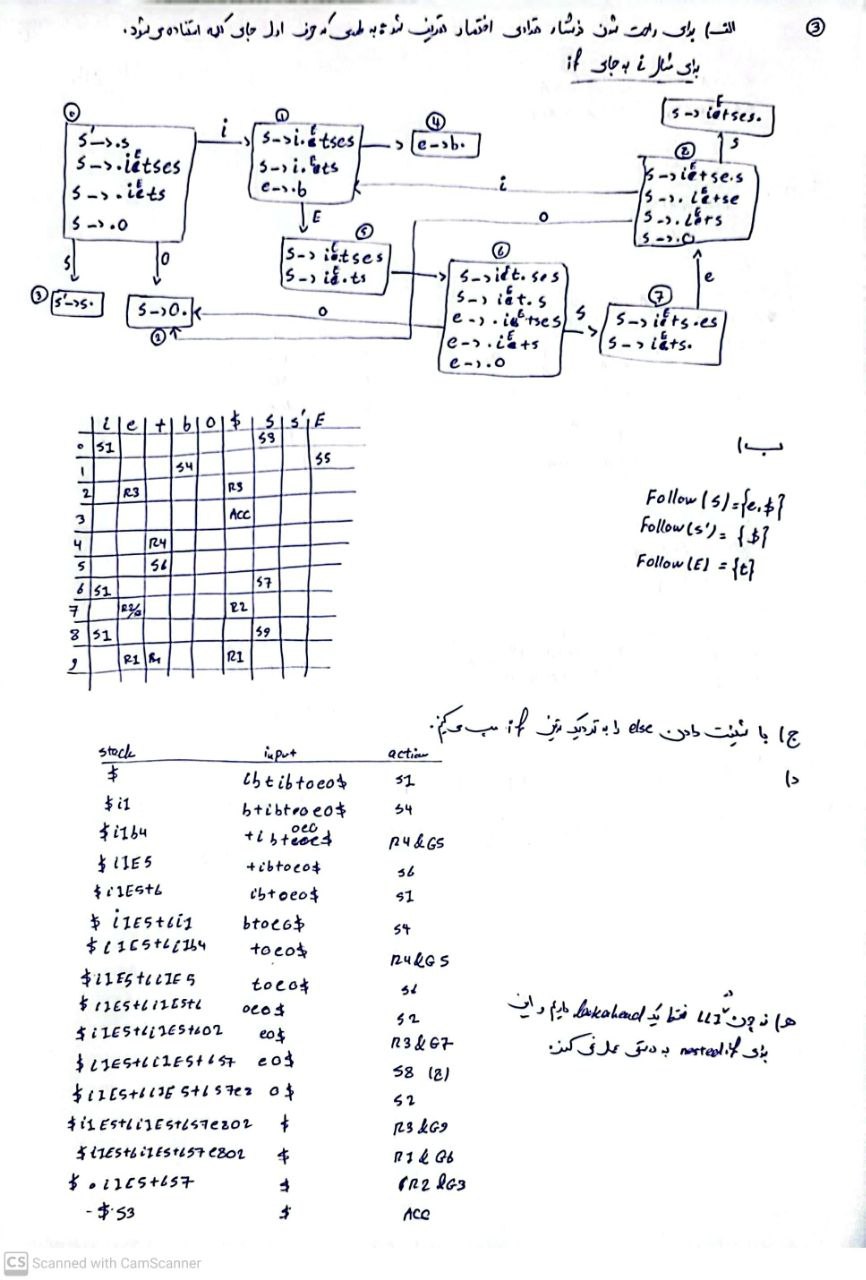 ③
الف) برای راحت شدن نوشتار مقداری اختصار تعریف شده به طوری که حرف اول جای کلمه استفاده می شود.
برای مثال i به جای if
⓪
S'->.S
S->.iEtses
S->.iEts
S->.0
i
①
S->i.Etses
S->i.Ets
e->.b
④
e->b.
S->iEtses.
S
⑧
S->iEtse.s
S->.iEtse
S->.iEts
S->.0
i
0
E
⑤
S->iE.tses
S->iE.ts
S
0
③
S'->S.
S->0.
②
0
⑥
S->iEt.ses
S->iEt.s
e->.iEtses
e->.iEts
e->.0
S
⑦
S->iEts.es
S->iEts.
e
i e t b 0 $ S S' E
0 S1 S3
1 S4 S5
2 R3 R3
3 ACC
4 R4
5 S6
6 S1 S7
7 R2
8 S1 S9
9 R1 R1
ب)
Follow(S)={e,$}
Follow(S')={$}
Follow(E)={t}
ج) با شیفت دادن else را به نزدیک ترین if می کنیم.
د)
stack input action
$ ibtibtoeo$ S1
$i1 btibtoeo$ S4
$i1b4 R4&G5
$i1E5 tibtoeo$ S6
$i1E5t6 ibtoeo$ S1
$i1E5t6i1 btoeo$ S4
$i1E5t6i1b4 toeo$ R4&G5
$i1E5t6i1E5 toeo$ S6
$i1E5t6i1E5t6 oeo$ S2
$i1E5t6i1E5t6o2 eo$ R3&G7
$i1E5t6i1E5t6S7 eo$ S8 (8)
$i1E5t6i1E5t6S7e8 o$ S2
$i1E5t6i1E5t6S7e8o2 $ R3&G9
$i1E5t6i1E5t6S7e8o2 $ R1&G6
$0i1E5t6S7 $ R2&G3
-$S3 $ ACC
ه) نه چون LL1 فقط یک lookahead داریم و این
برای nested if به درستی عمل نمی کند.
CS Scanned with CamScanner